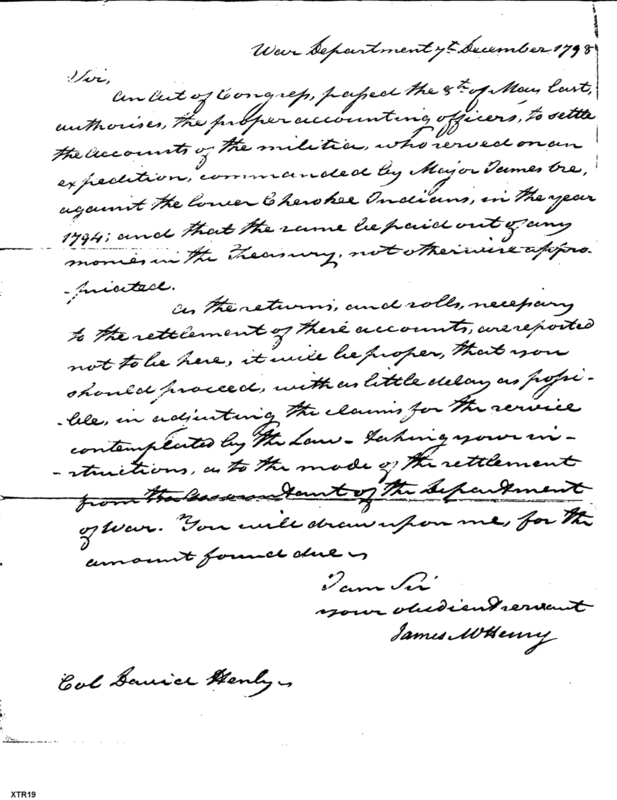 War Department 7th December 1798
Sir,
An Act of Congress, passed the 8th of May last,
authorises, the proper accounting officers, to settle
the accounts of the militia, who served on an
expedition, commanded by Major James Ore,
against the lower Cherokee Indians, in the year
1794; and that the same be paid out of any
monies in the Treasury, not otherwise appro-
-priated.
As the returns, and rolls, necessary
to the settlement of these accounts, are reported
not to be here, it will be proper, that you
should proceed, with as little delay as possi-
-ble, in adjusting the claims for the service
contemplated by the Law - taking your in-
-structions, as to the mode of the settlement
from the Accountant of the Department
of War. You will draw upon me, for the
amount found due
I am Sir
your obedient servant
James McHenry
Col David Henly
XTR19